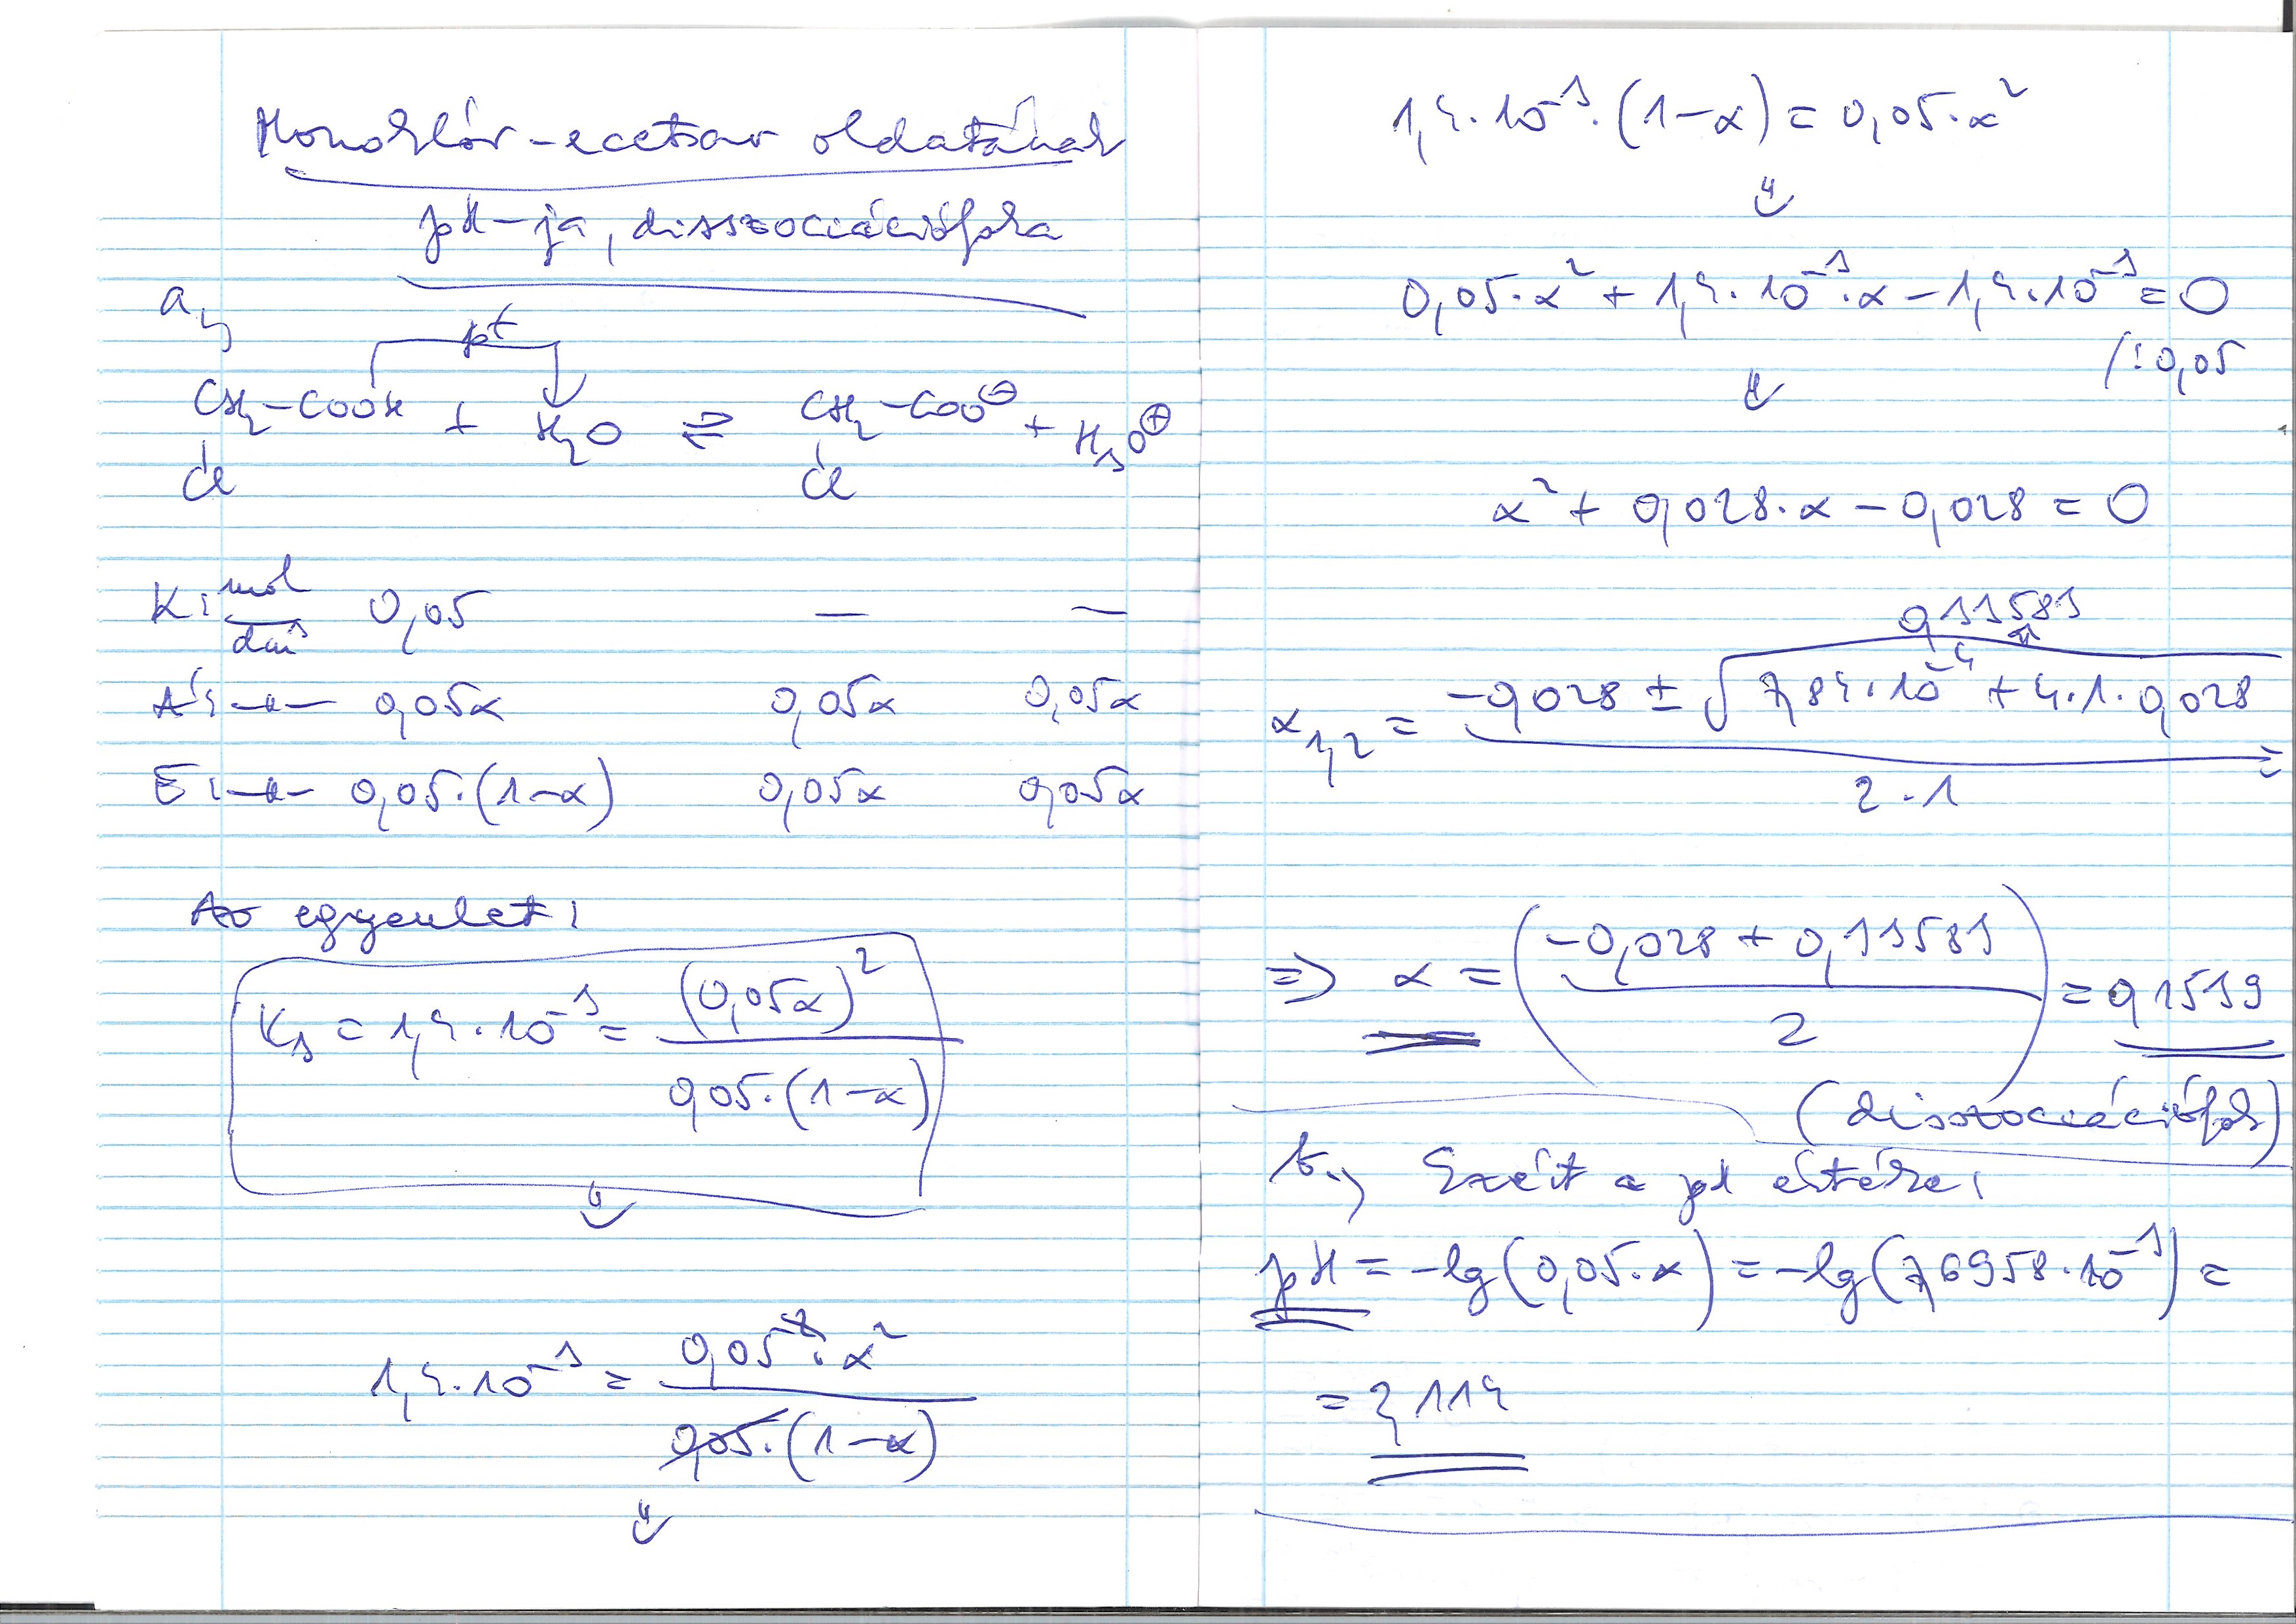 Monoklór-ecetsav oldatának
pH-ja, disszociációfoka
a,
p+
CH2-COOH + H2O ⇌ CH2-COO⊖ + H3O⊕
Cl Cl
K: mol/dm3 0,05 — —
Á: -"- 0,05α 0,05α 0,05α
E: -"- 0,05·(1-α) 0,05α 0,05α
Az egyenlet:
Ks = 1,4·10^-3 = (0,05α)^2 / 0,05·(1-α)
⇓
1,4·10^-3 = 0,05^2·α^2 / 0,05·(1-α)
⇓
1,4·10^-3·(1-α) = 0,05·α^2
⇓
0,05·α^2 + 1,4·10^-3·α - 1,4·10^-3 = 0
/:0,05
⇓
α^2 + 0,028·α - 0,028 = 0
0,33583
α1,2 = -0,028 ± √(7,84·10^-4 + 4·1·0,028) / 2·1 =
=> α = (-0,028 + 0,33583 / 2) = 0,1539
(disszociációfok)
b.) Ezért a pH értéke:
pH = -lg(0,05·α) = -lg(7,6958·10^-3) =
= 2,114